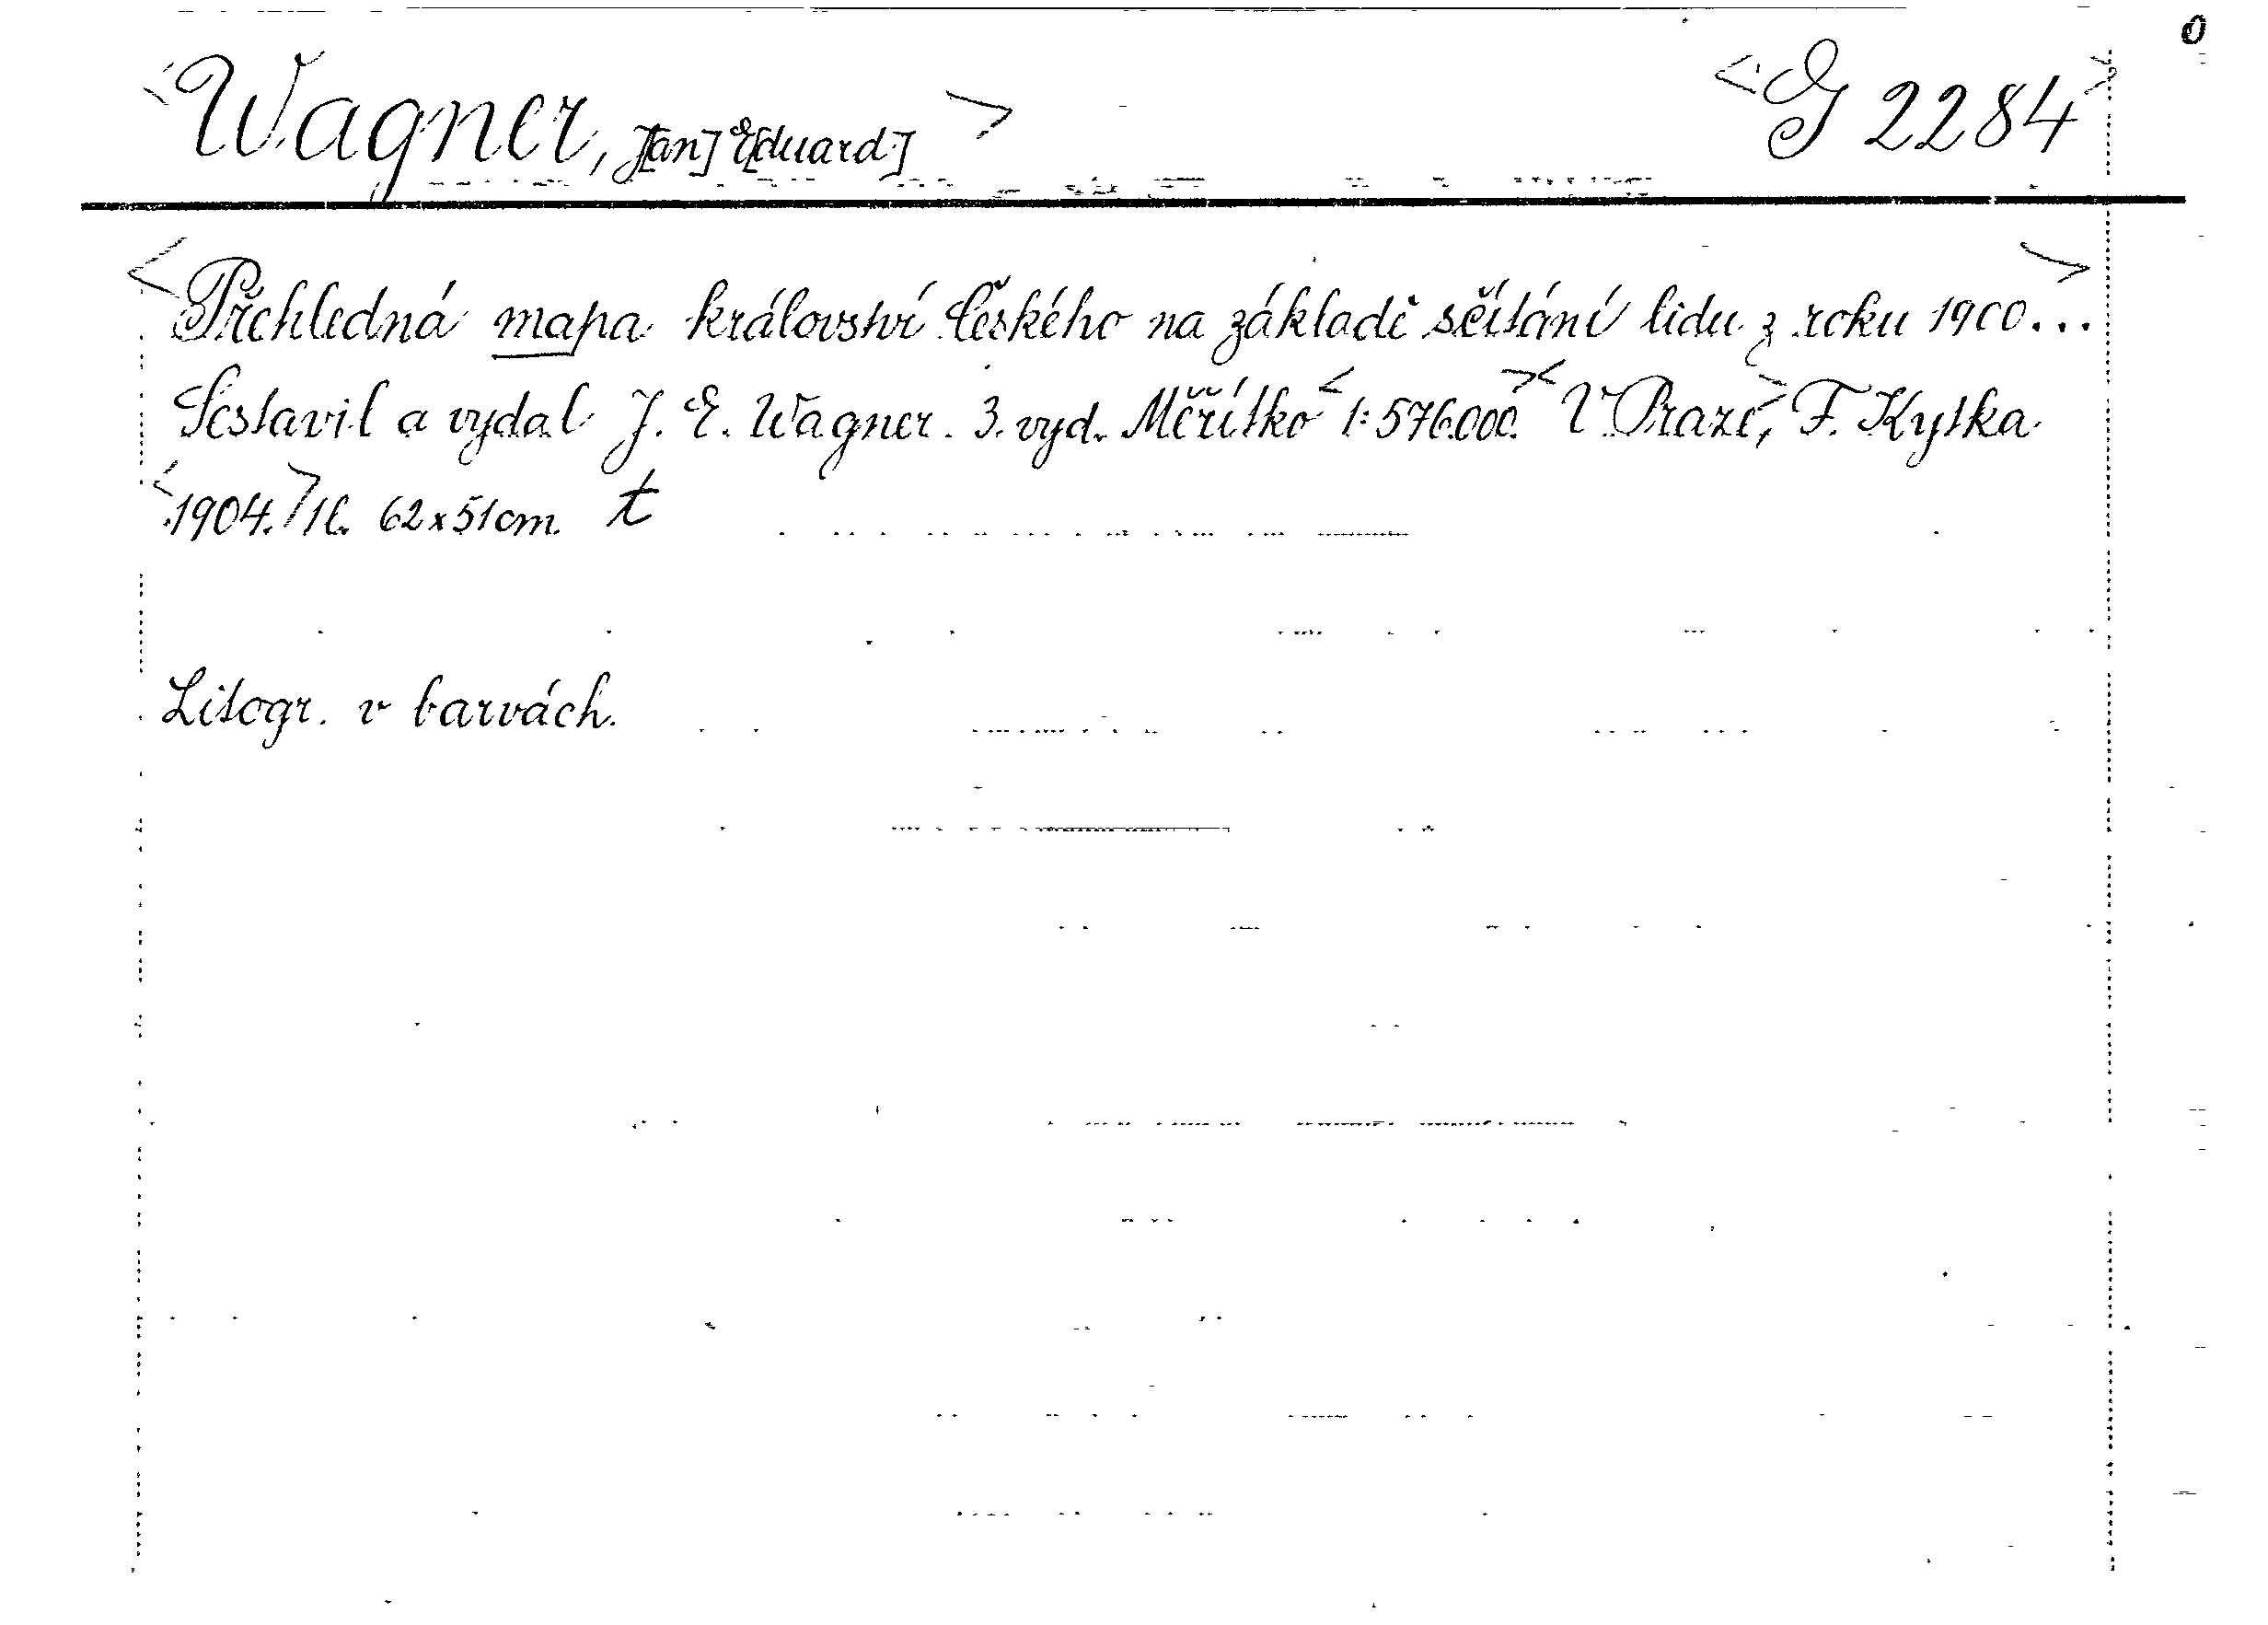 0
<Wagner, J[an] E[duard]> <G 2284>
<Přehledná mapa království českého na základě sčítání lidu z roku 1900...>
Sestavil a vydal J. E. Wagner. 3. vyd. Měřítko <1:576.000.> <V Praze,> F. Kytka
<1904.> 1l. 62x51cm. t
Litogr. v barvách.